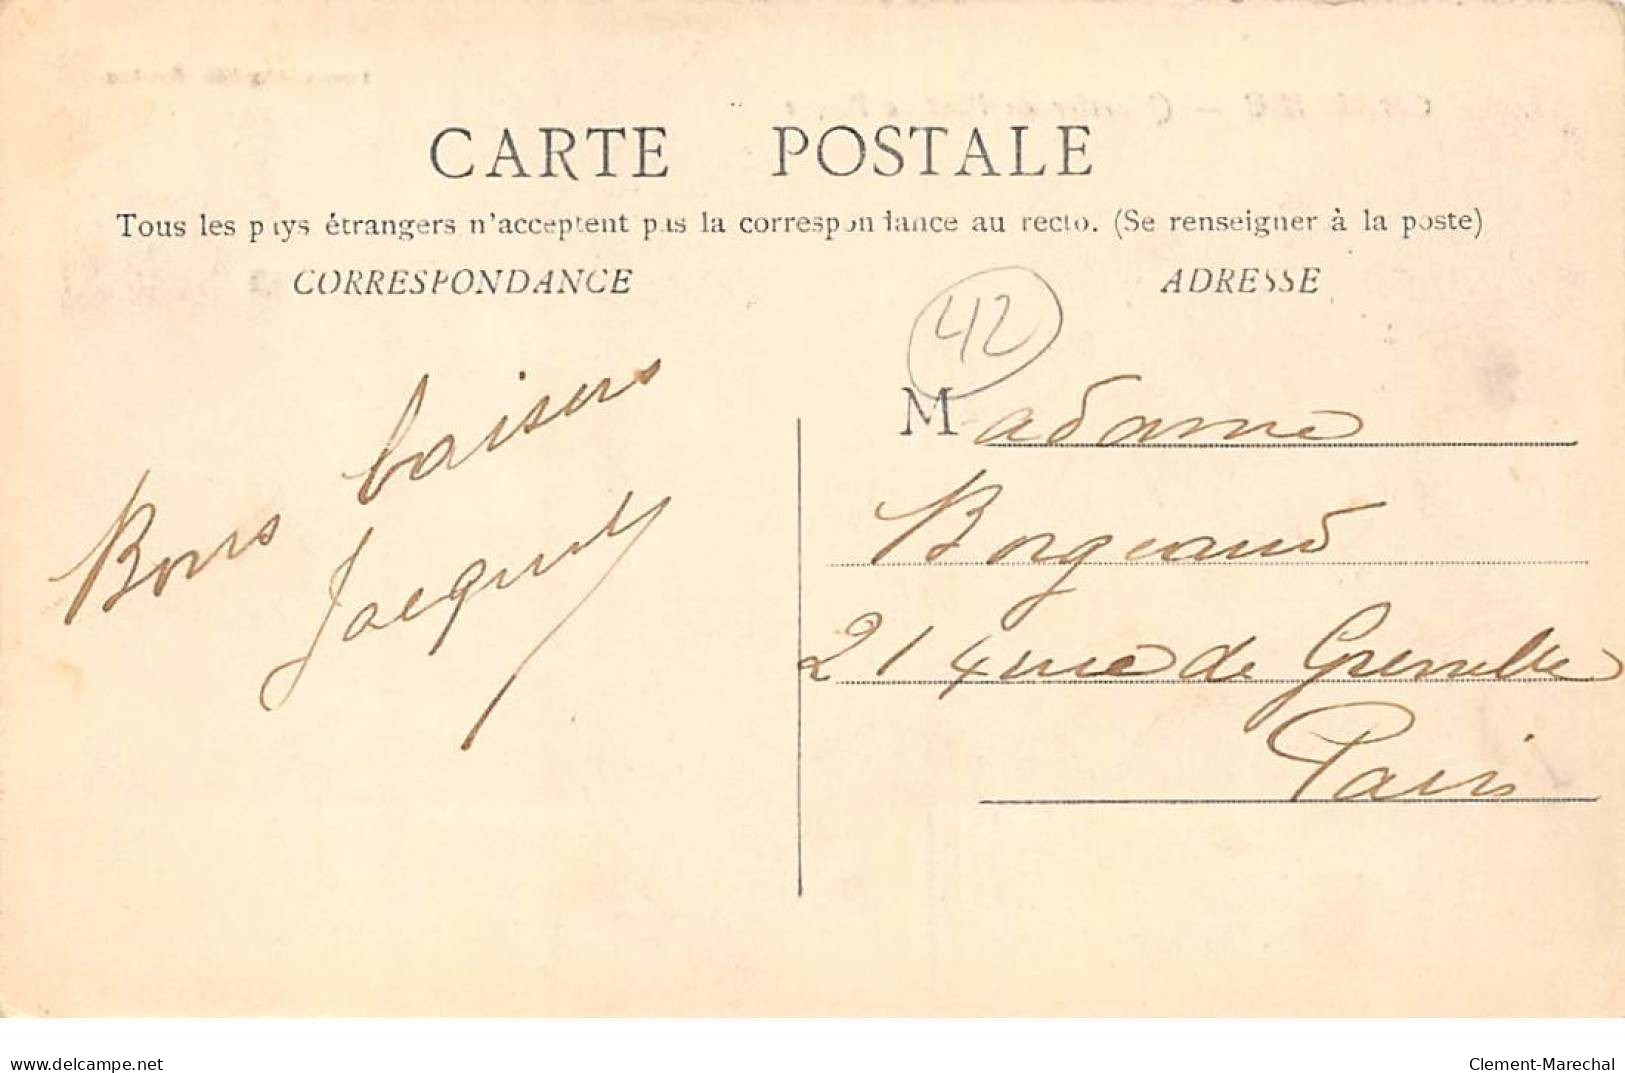 CARTE POSTALE
Tous les pays étrangers n'acceptent pas la correspondance au recto. (Se renseigner à la poste)
CORRESPONDANCE
ADRESSE
42
Bons baisers
Jacques
Madame
Borgeaud
214 rue de Grenelle
Paris
delcampe.net
Clement-Marechal